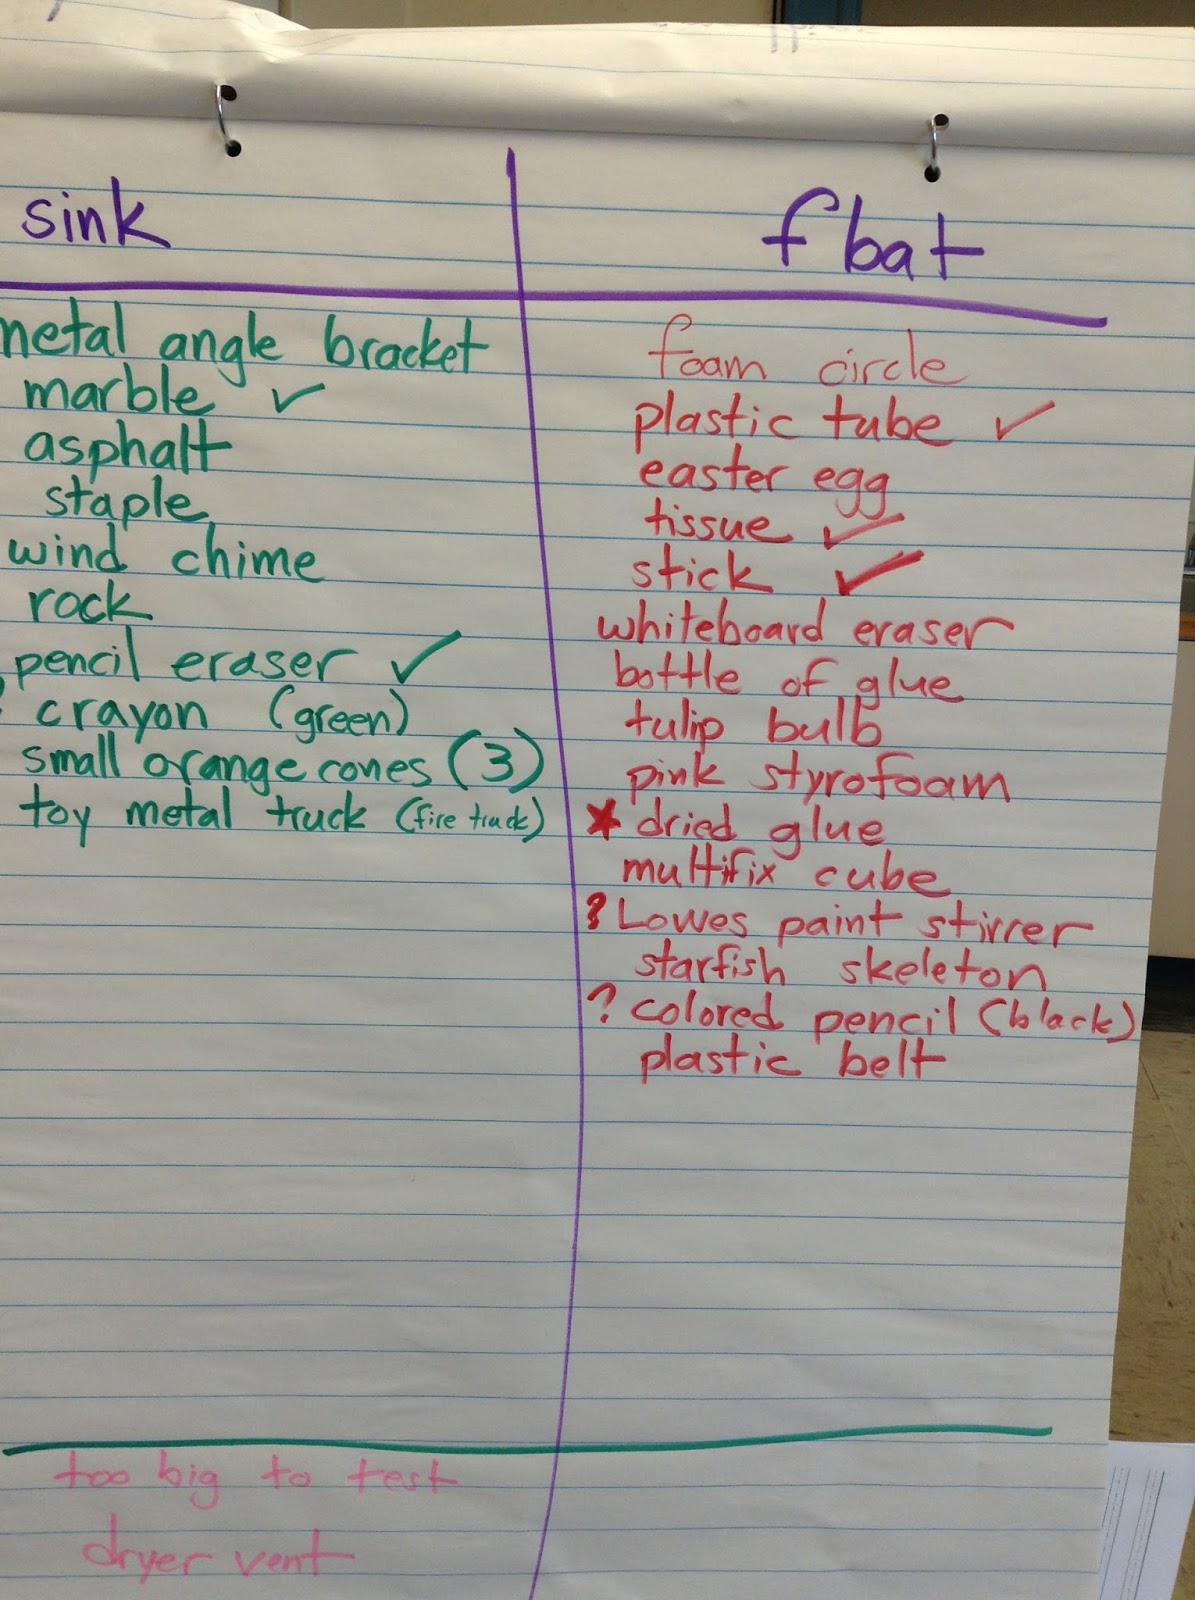 sink
metal angle bracket
marble ✓
asphalt
staple
wind chime
rock
pencil eraser ✓
? crayon (green)
small orange cones (3)
toy metal truck (fire truck)
float
foam circle
plastic tube ✓
easter egg
tissue ✓
stick ✓
whiteboard eraser
bottle of glue
tulip bulb
pink styrofoam
* dried glue
multifix cube
? Lowes paint stirrer
starfish skeleton
? colored pencil (black)
plastic belt
too big to test
dryer vent